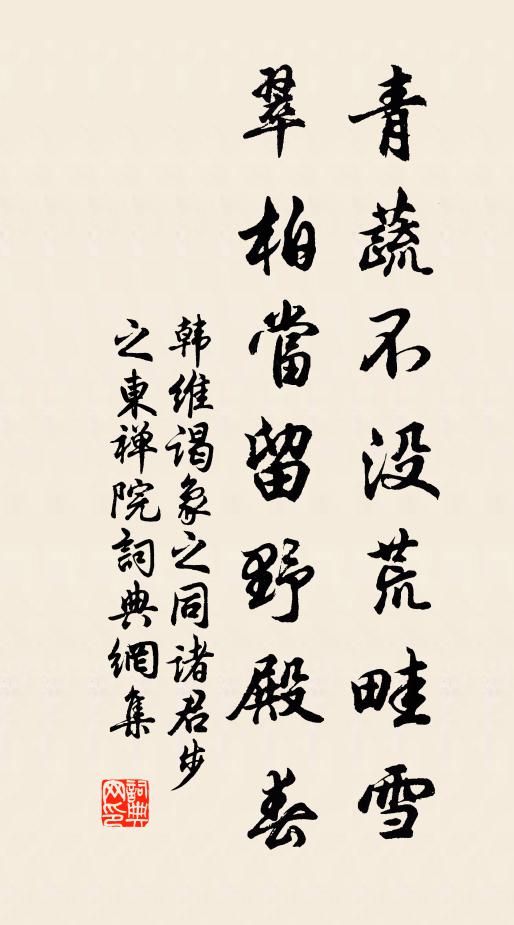 青蔬不没荒畦雪
翠柏當留野殿春
韩维谒象之同诸君步
之東禅院詞典網集
詞典
网印